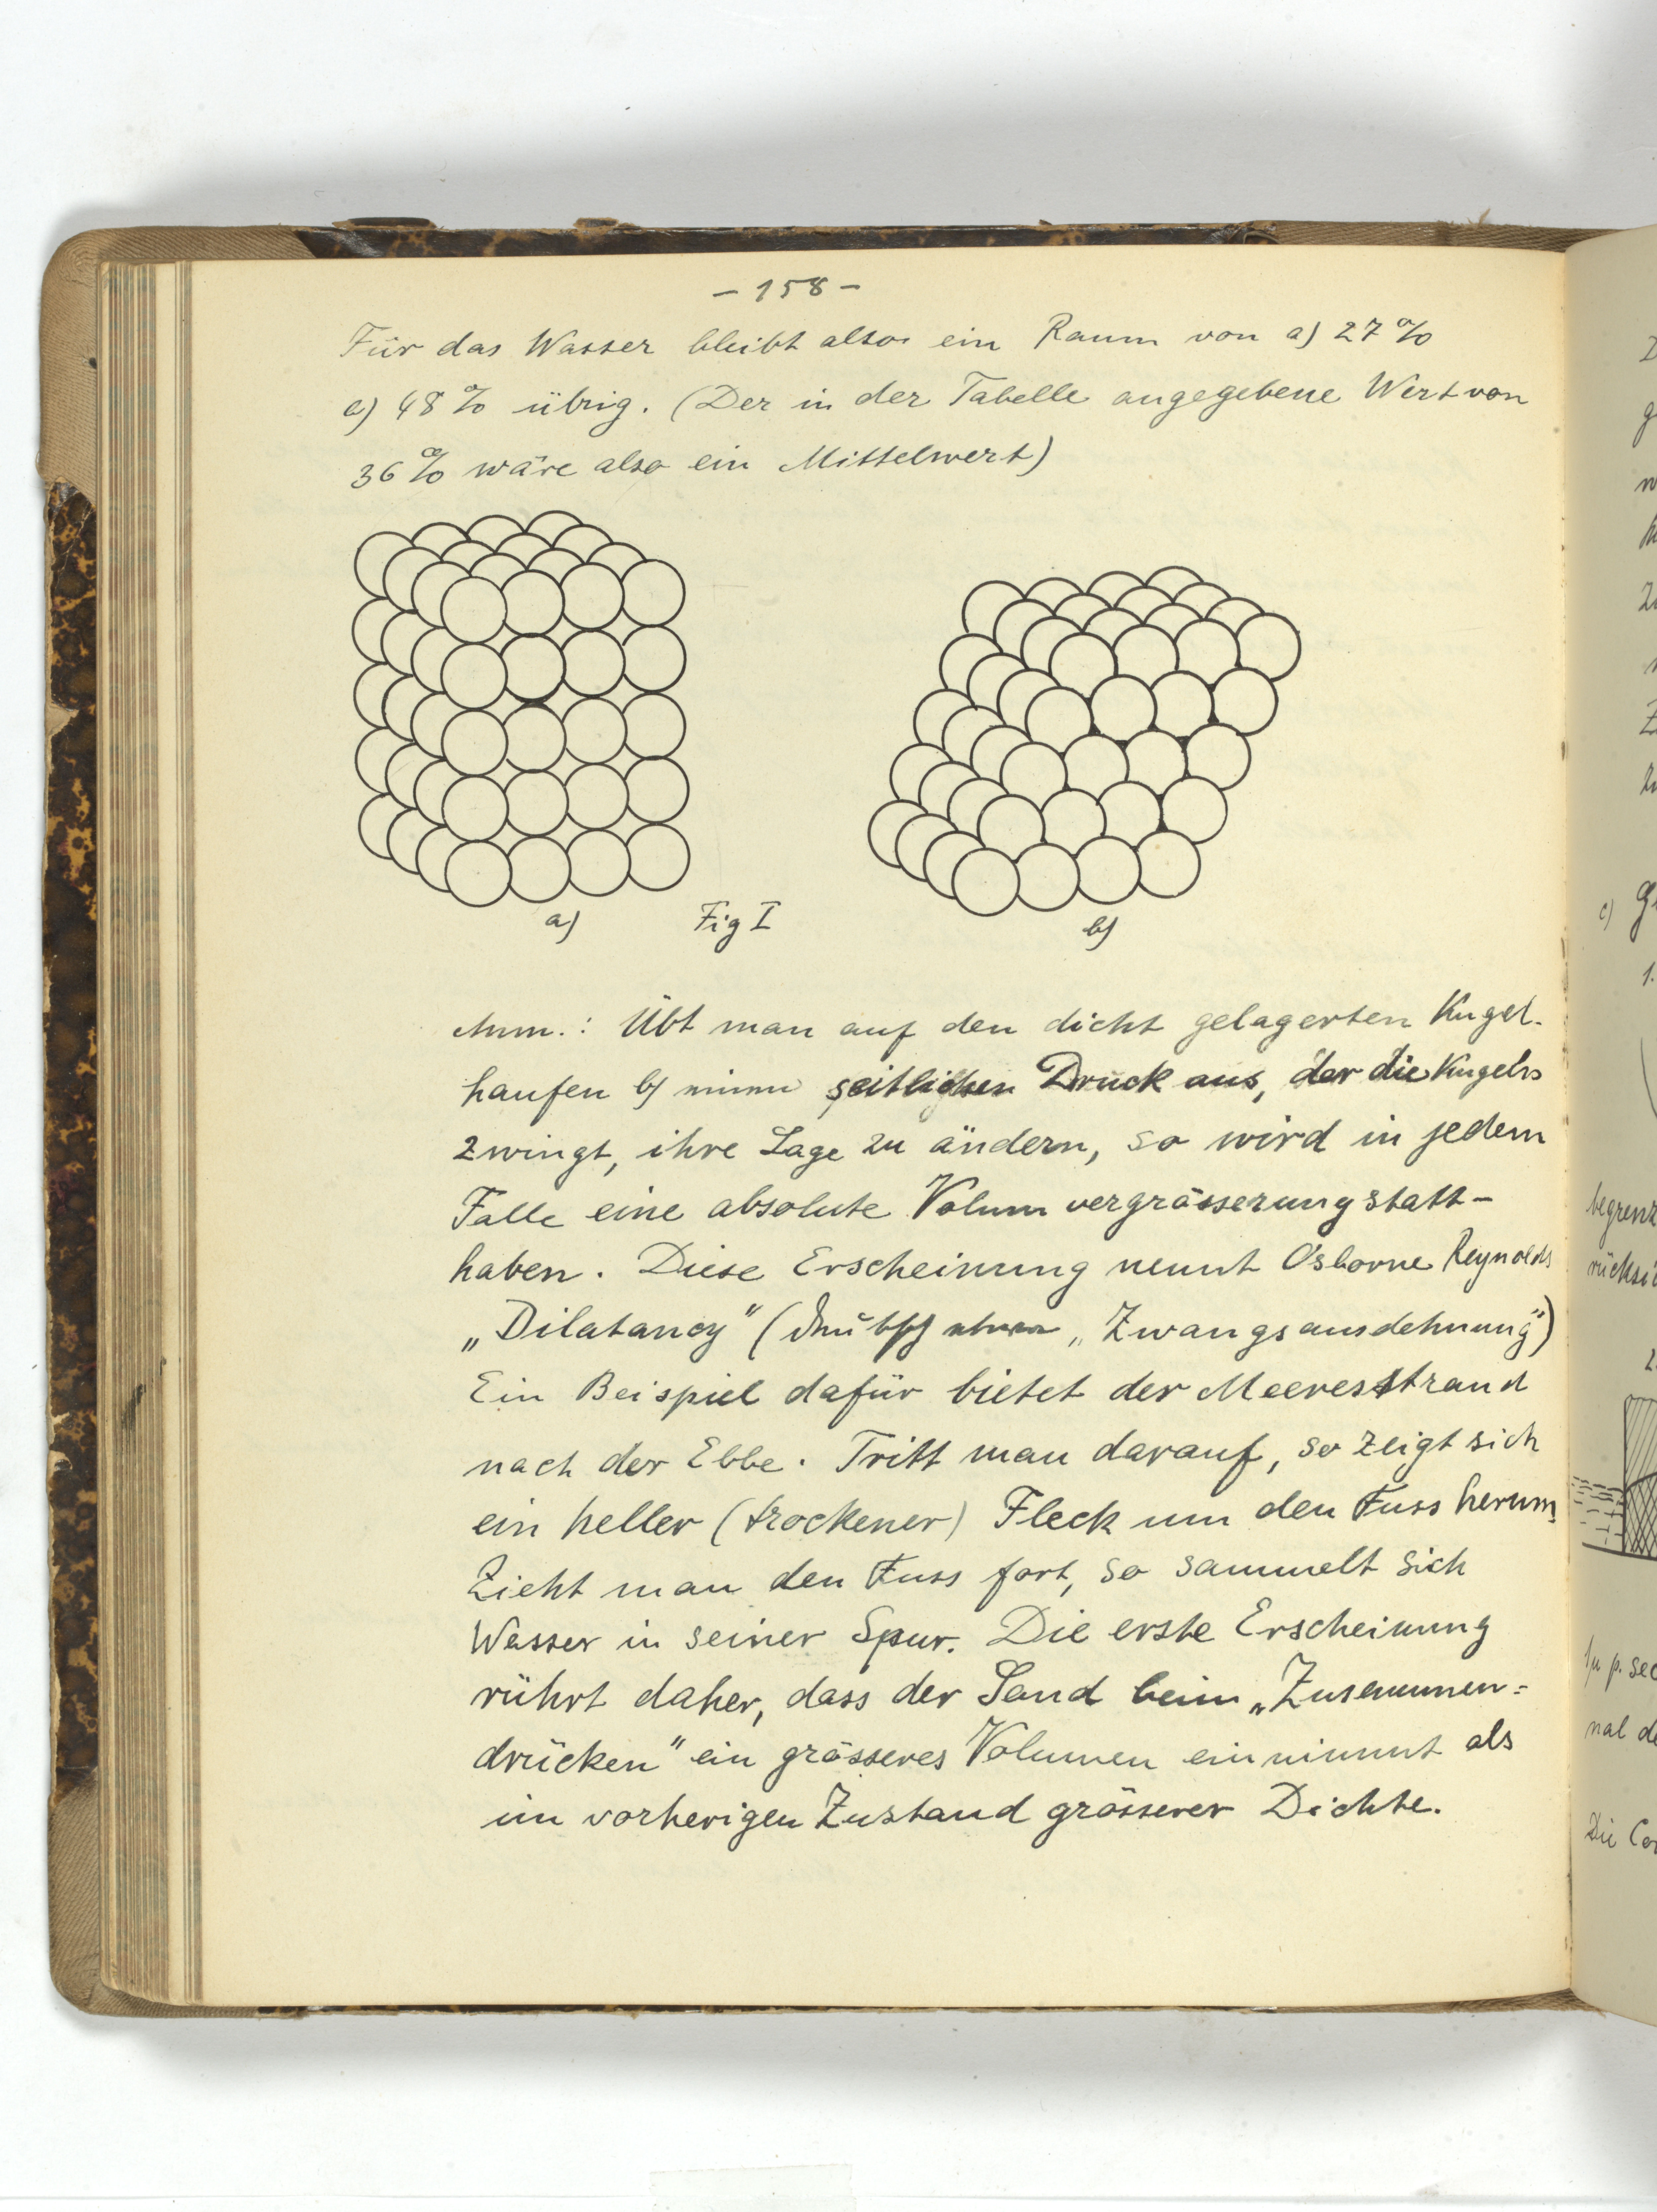 - 158 -
Für das Wasser bleibt also ein Raum von a) 27 %
a) 48 % übrig. (Der in der Tabelle angegebene Wert von
36 % wäre also ein Mittelwert)
a) Fig I b)
Anm.: Übt man auf den dicht gelagerten Kugel-
haufen b) seitlichen Druck aus, der die Kugeln
zwingt, ihre Lage zu ändern, so wird in jedem
Falle eine absolute Volum vergrösserung statt-
haben. Diese Erscheinung nennt Osborne Reynolds
„Dilatancy" ( „Zwangsausdehnung")
Ein Beispiel dafür bietet der Meeresstrand
nach der Ebbe. Tritt man darauf, so zeigt sich
ein heller (trockener) Fleck um den Fuss herum.
Zieht man den Fuss fort, so sammelt sich
Wasser in seiner Spur. Die erste Erscheinung
rührt daher, dass der Sand beim „Zusammen=
drücken" ein grösseres Volumen einnimmt als
im vorherigen Zustand grösserer Dichte.
c)
1.
begrenz
rücksi
2
1µ p. sec
nal de
Die Co